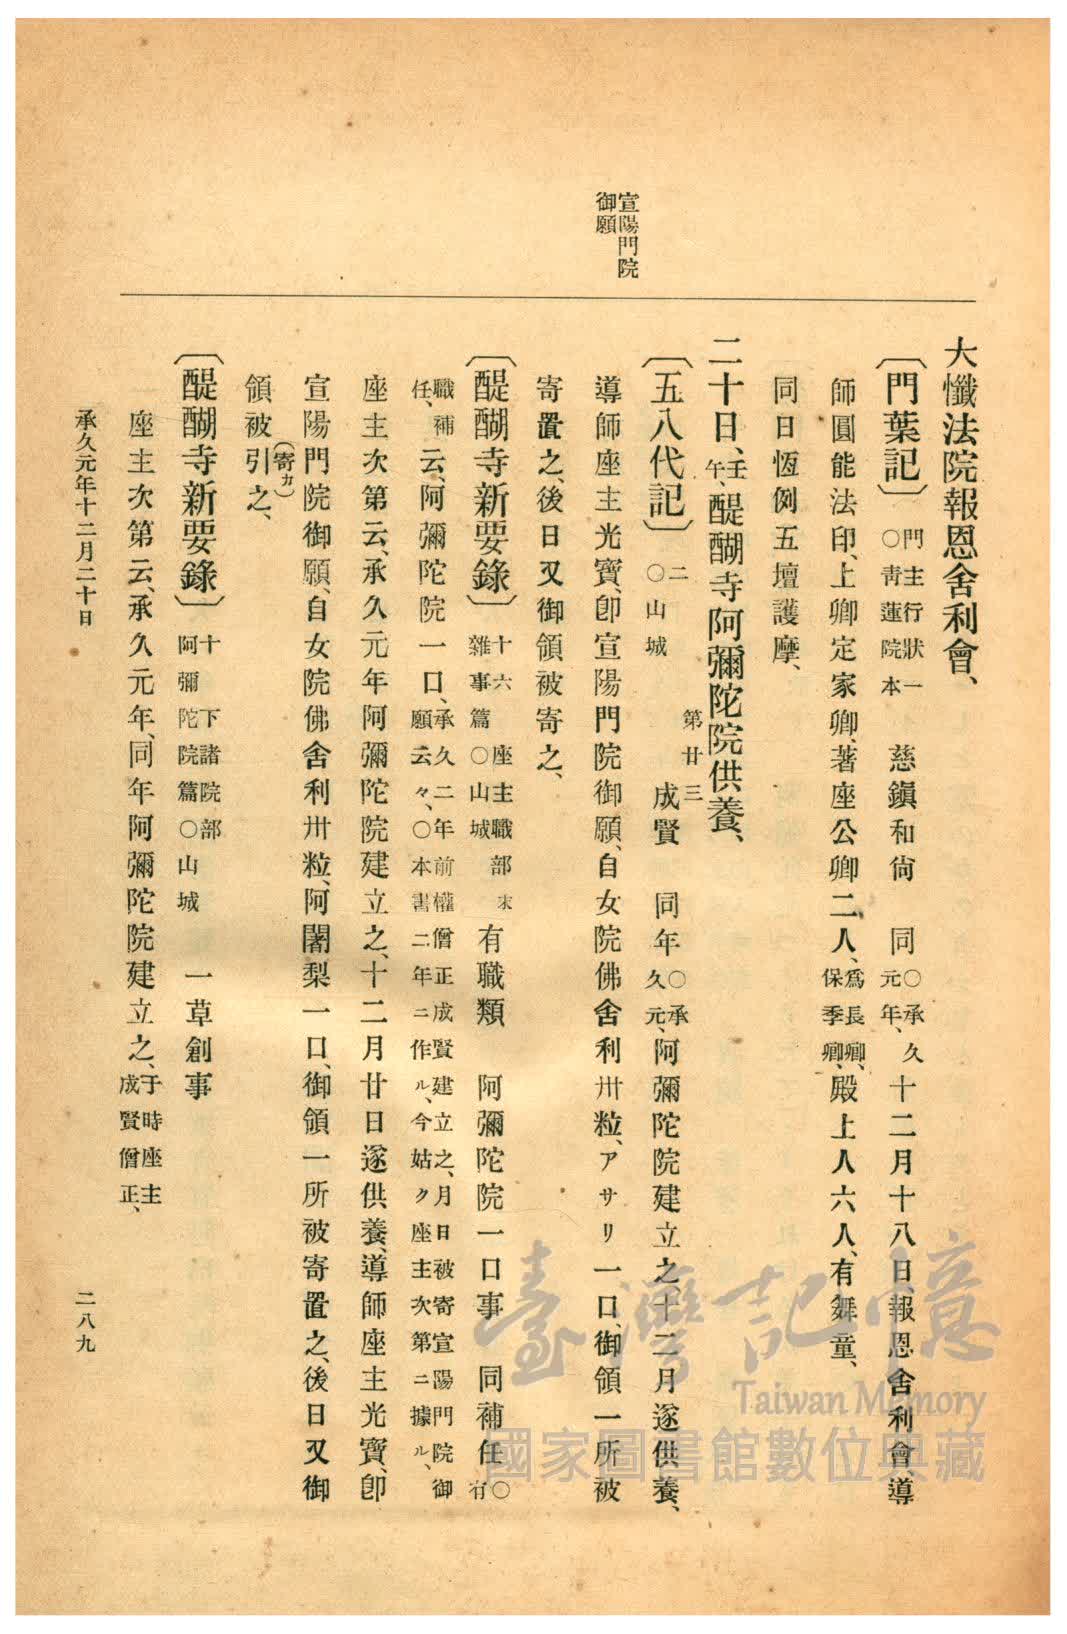 宣陽門院
御願
大懺法院報恩舍利會、
〔門葉記〕 門主行狀一 ○靑蓮院本 慈鎭和尙 同 ○承久元年、 十二月十八日報恩舍利會導
師圓能法印、上卿定家卿、著座公卿二人、爲長卿、保季卿、殿上人六人、有舞童、
同日恆例五壇護摩、
二十日、壬午、醍醐寺阿彌陀院供養、
〔五八代記〕 二 ○山城 第廿三 成賢 同年 ○承久元、阿彌陀院建立之、十二月遂供養、
導師座主光寶、卽宣陽門院御願、自女院佛舍利卅粒、アサリ一口、御領一所被
寄置之、後日又御領被寄之、
〔醍醐寺新要錄〕 十六 座主職部末 雜事篇 ○山城 有職類 阿彌陀院一口事 同補任 ○有
職補任、云、阿彌陀院一口、承久二年前權僧正成賢建立之、月日被寄宣陽門院御願云々、○本書二年ニ作ル、今姑ク座主次第ニ據ル、
座主次第云、承久元年阿彌陀院建立之、十二月廿日遂供養、導師座主光寶、卽
宣陽門院御願、自女院佛舍利卅粒、阿闍梨一口、御領一所被寄置之、後日又御
領被引(寄カ)之、
〔醍醐寺新要錄〕 十下諸院部 阿彌陀院篇 ○山城 一草創事
座主次第云、承久元年、同年阿彌陀院建立之、于時座主成賢僧正、
承久元年十二月二十日
二八九
臺灣記憶
Taiwan Memory
國家圖書館數位典藏